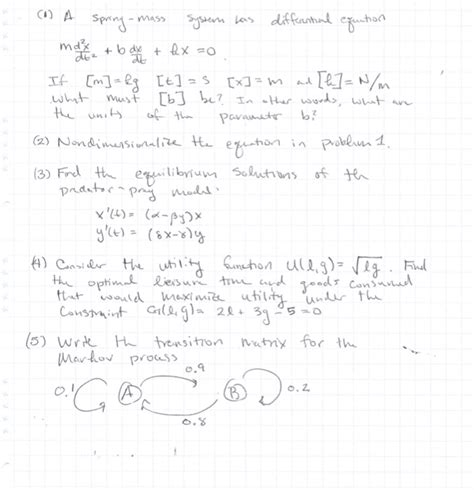 (1) A spring-mass system has differential equation
m d²x/dt² + b dx/dt + kx = 0.
If [m]=kg [t]=s [x]=m and [k]=N/m
what must [b] be? In other words, what are
the units of the parameter b?
(2) Nondimensionalize the equation in problem 1.
(3) Find the equilibrium solutions of the
predator-prey model.
x'(t) = (α-βy)x
y'(t) = (δx-γ)y
(4) Consider the utility function U(l,g)=√lg. Find
the optimal leisure time and goods consumed
that would maximize utility under the
constraint G(l,g) = 2l + 3g - 5 = 0
(5) Write the transition matrix for the
Markov process
0.9
0.1 A B 0.2
0.8